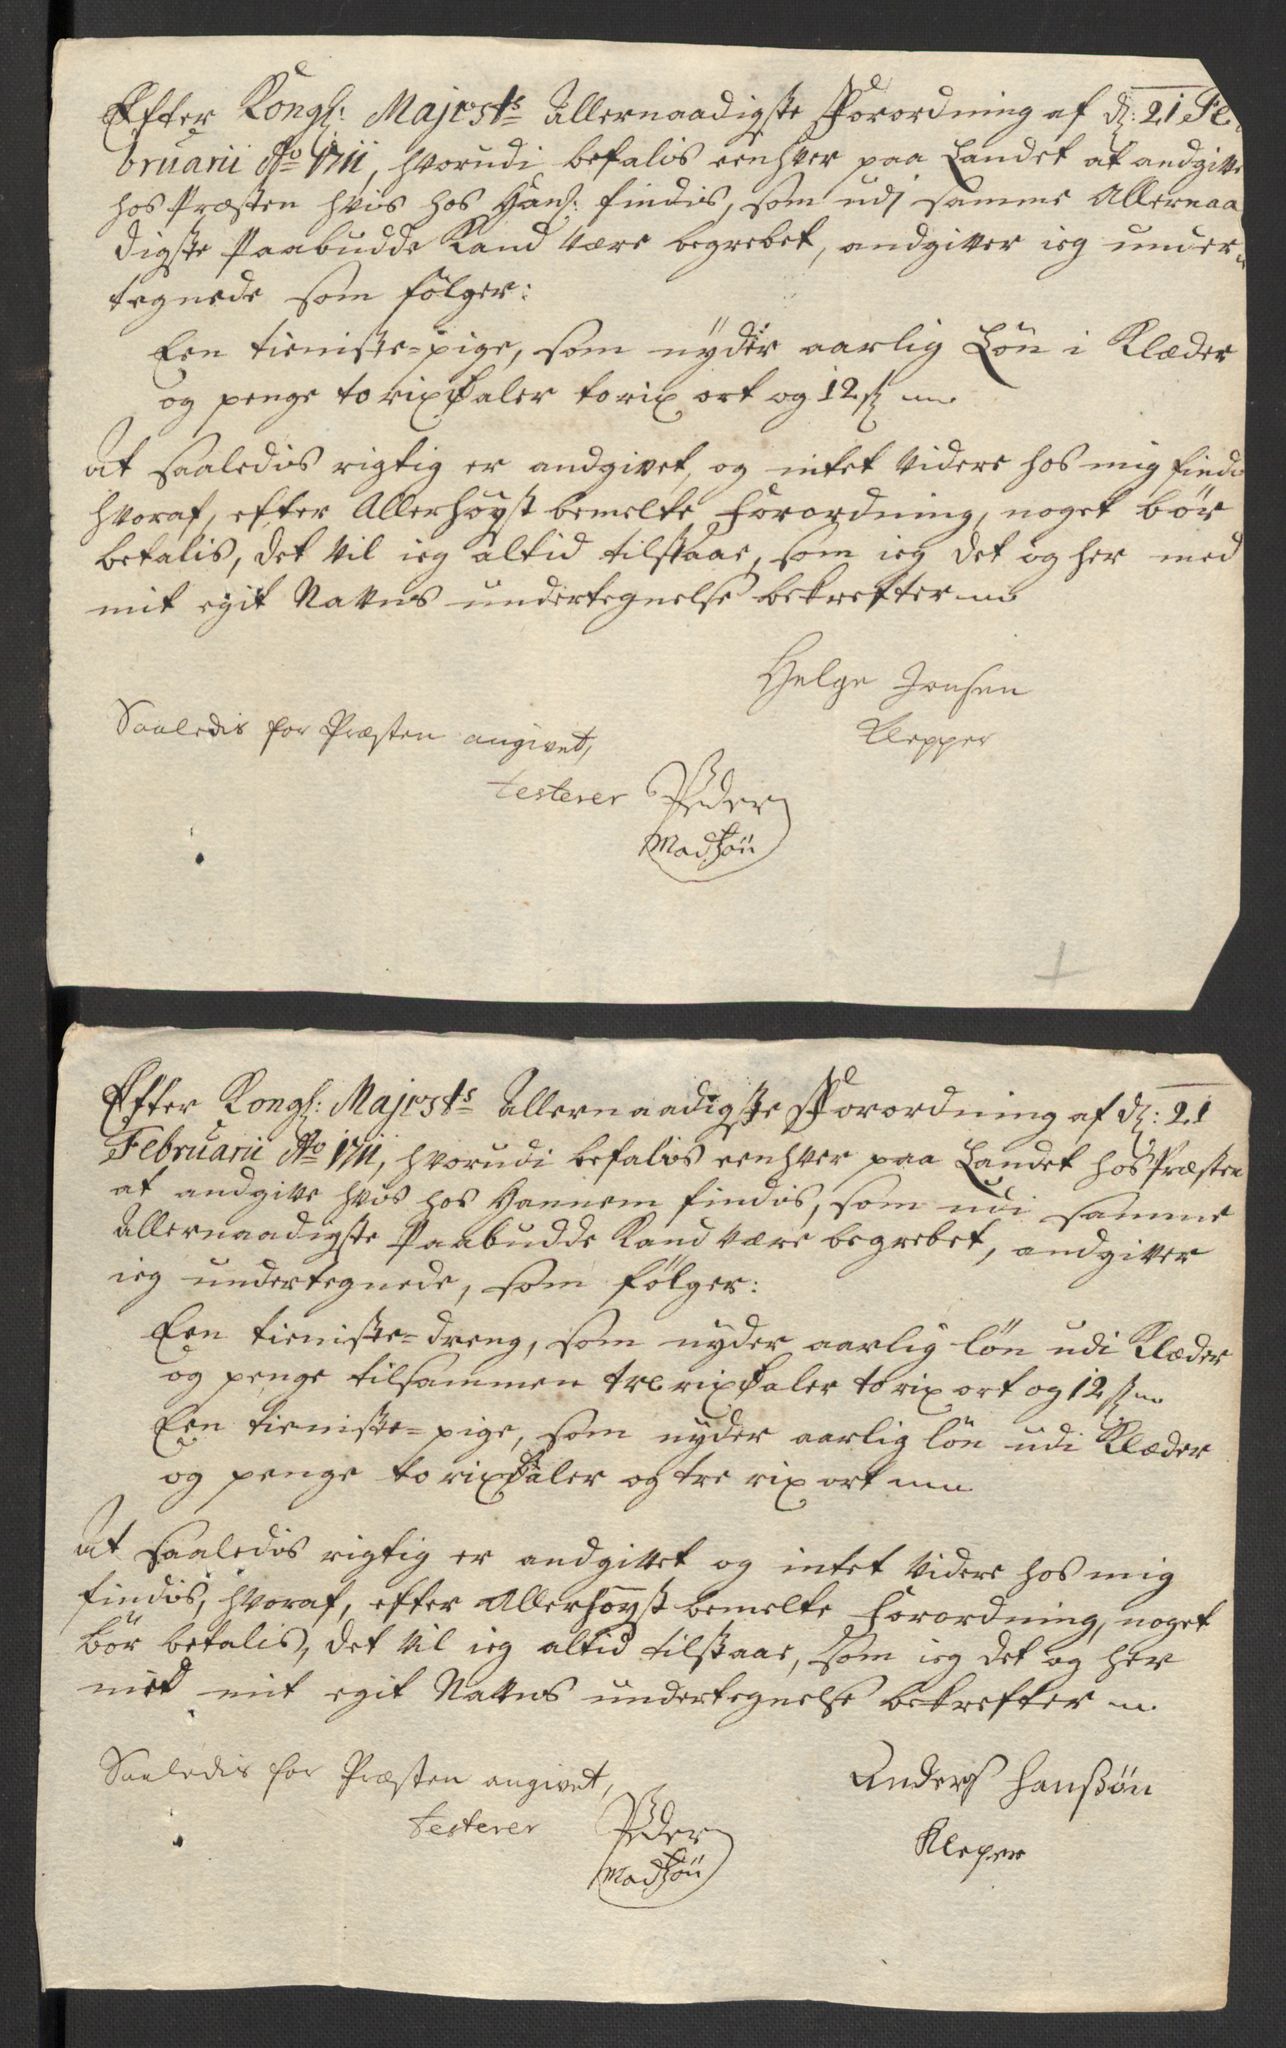 Efter Kongl: Majests Allernaadigste Forordning af d: 21 Fe
bruarii Ao 1711, hvorudi befalis eenhver paa Landet at andgive
hos Præsten hvis hos Hans: findis, som udj samme Allernaa
digste Paabudde Kand være begrebet, andgiver ieg under
tegnede som følger:
Een tieniste-pige, som nyder aarlig Løn i Klæder
og penge to rixdaler to rix ort og 12 s
At saaledis rigtig er andgivet, og intet videre hos mig findis
hvoraf, efter Allerhøyst bemelte Forordning, noget bør
betalis, det vil ieg altid tilstaae, som ieg det og her med
mit egit Nafns undertegnelse bekrefter
Helge Jensen
Klepper
Saaledis for Præsten angivet,
testerer Peder
Madsøn
Efter Kongl: Majests Allernaadigste Forordning af d: 21
Februarii Ao 1711, hvorudi befalis eenhver paa Landet hos Præsten
at andgive hvis hos Hannem findis, som udi samme
Allernaadigste Paabudde Kand være begrebet, andgiver
ieg undertegnede, som følger:
Een tieniste-dreng, som nyder aarlig løn udi Klæder
og penge tilsammen tre rixdaler to rix ort og 12 s
Een tieniste-pige, som nyder aarlig løn udi Klæder
og penge to rixdaler og tre rix ort
At saaledis rigtig er andgivet og intet videre hos mig
findis, hvoraf, efter Allerhøyst bemelte Forordning, noget
bør betalis, det vil ieg altid tilstaae, som ieg det og her
med mit egit Nafns undertegnelse bekrefter
Saaledis for Præsten angivet,
testerer Peder
Madsøn
Anders Hanssøn
Kleper